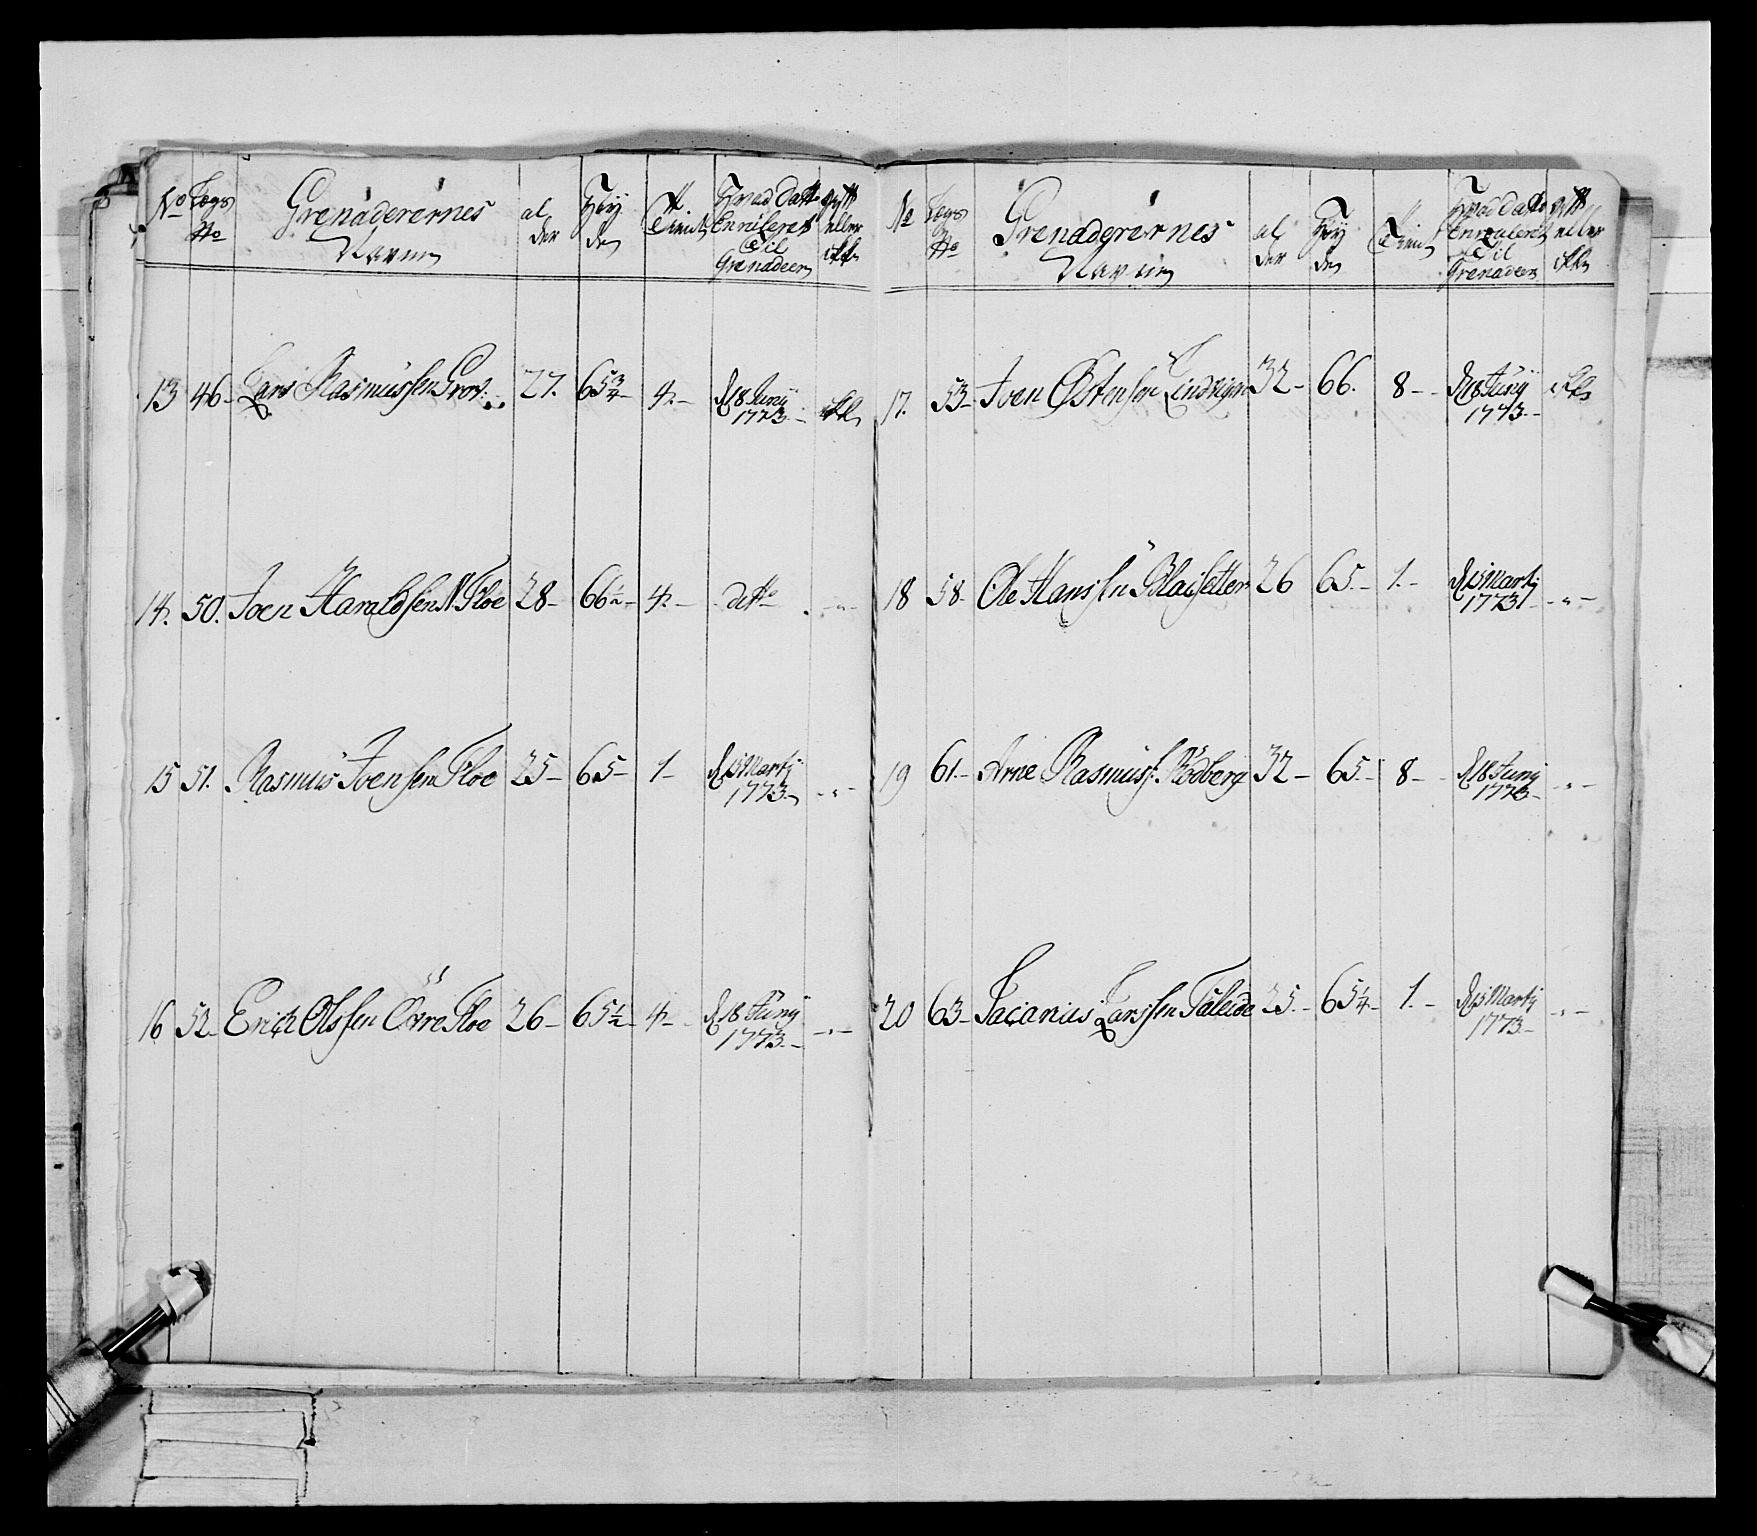 No Lægs No Grenaderernes Navne al der Høy de Tient Hvad Datto Enrulleret Til Grenadeer gift eller ikke
13 46. Lars Rasmussen Grov. 27. 65 3/4 4. d 18 Junij 1773. ikke
14. 50. Joen Haraldsen N Floe 28 66 1/2 4. ditto „
15 51. Rasmus Joensen Floe 25 65 1 d 15 Martj 1773. „
16 52 Erich Olssen Övre Floe 26 65 1/2 4 d 18 Junij 1773. „
No Lægs No Grenaderernes Navne al der Høy de Tient Hvad Datto Enrulleret Til Grenadeer gift eller ikke
17. 53 Joen Østensen 32 66. 8 d 18 Junij 1773. ikke
18 58 Ole Hanssen 26 65. 1. d 15 Martj 1773 „
19 61. Arne Rasmuss. Rödberg 32 65. 8 d 18 Junij 1773 „
20 63 Larssen 25. 65 1/4 1. d 15 Martj 1773. „